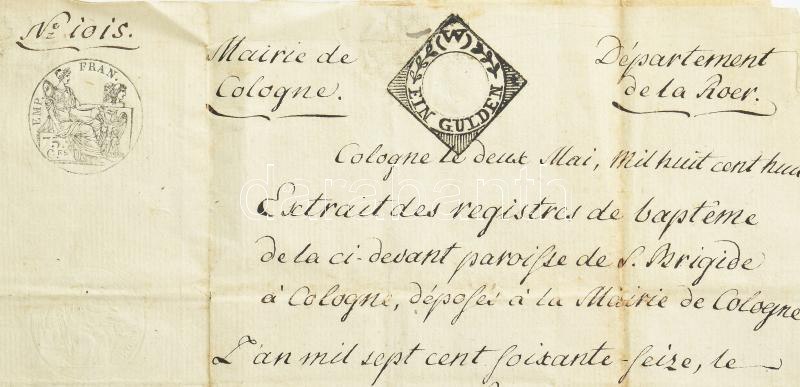 No. 1015.
EMP. FRAN.
75. Ces
Mairie de
Cologne.
(W)
EIN GULDEN
Département
de la Roer.
Cologne le deux Mai, Mil huit cent huit
Extrait des registres de baptême
de la ci-devant paroisse de S. Brigide
à Cologne, déposés à la Mairie de Cologne
L'an mil sept cent soixante-seize, le
darabanth